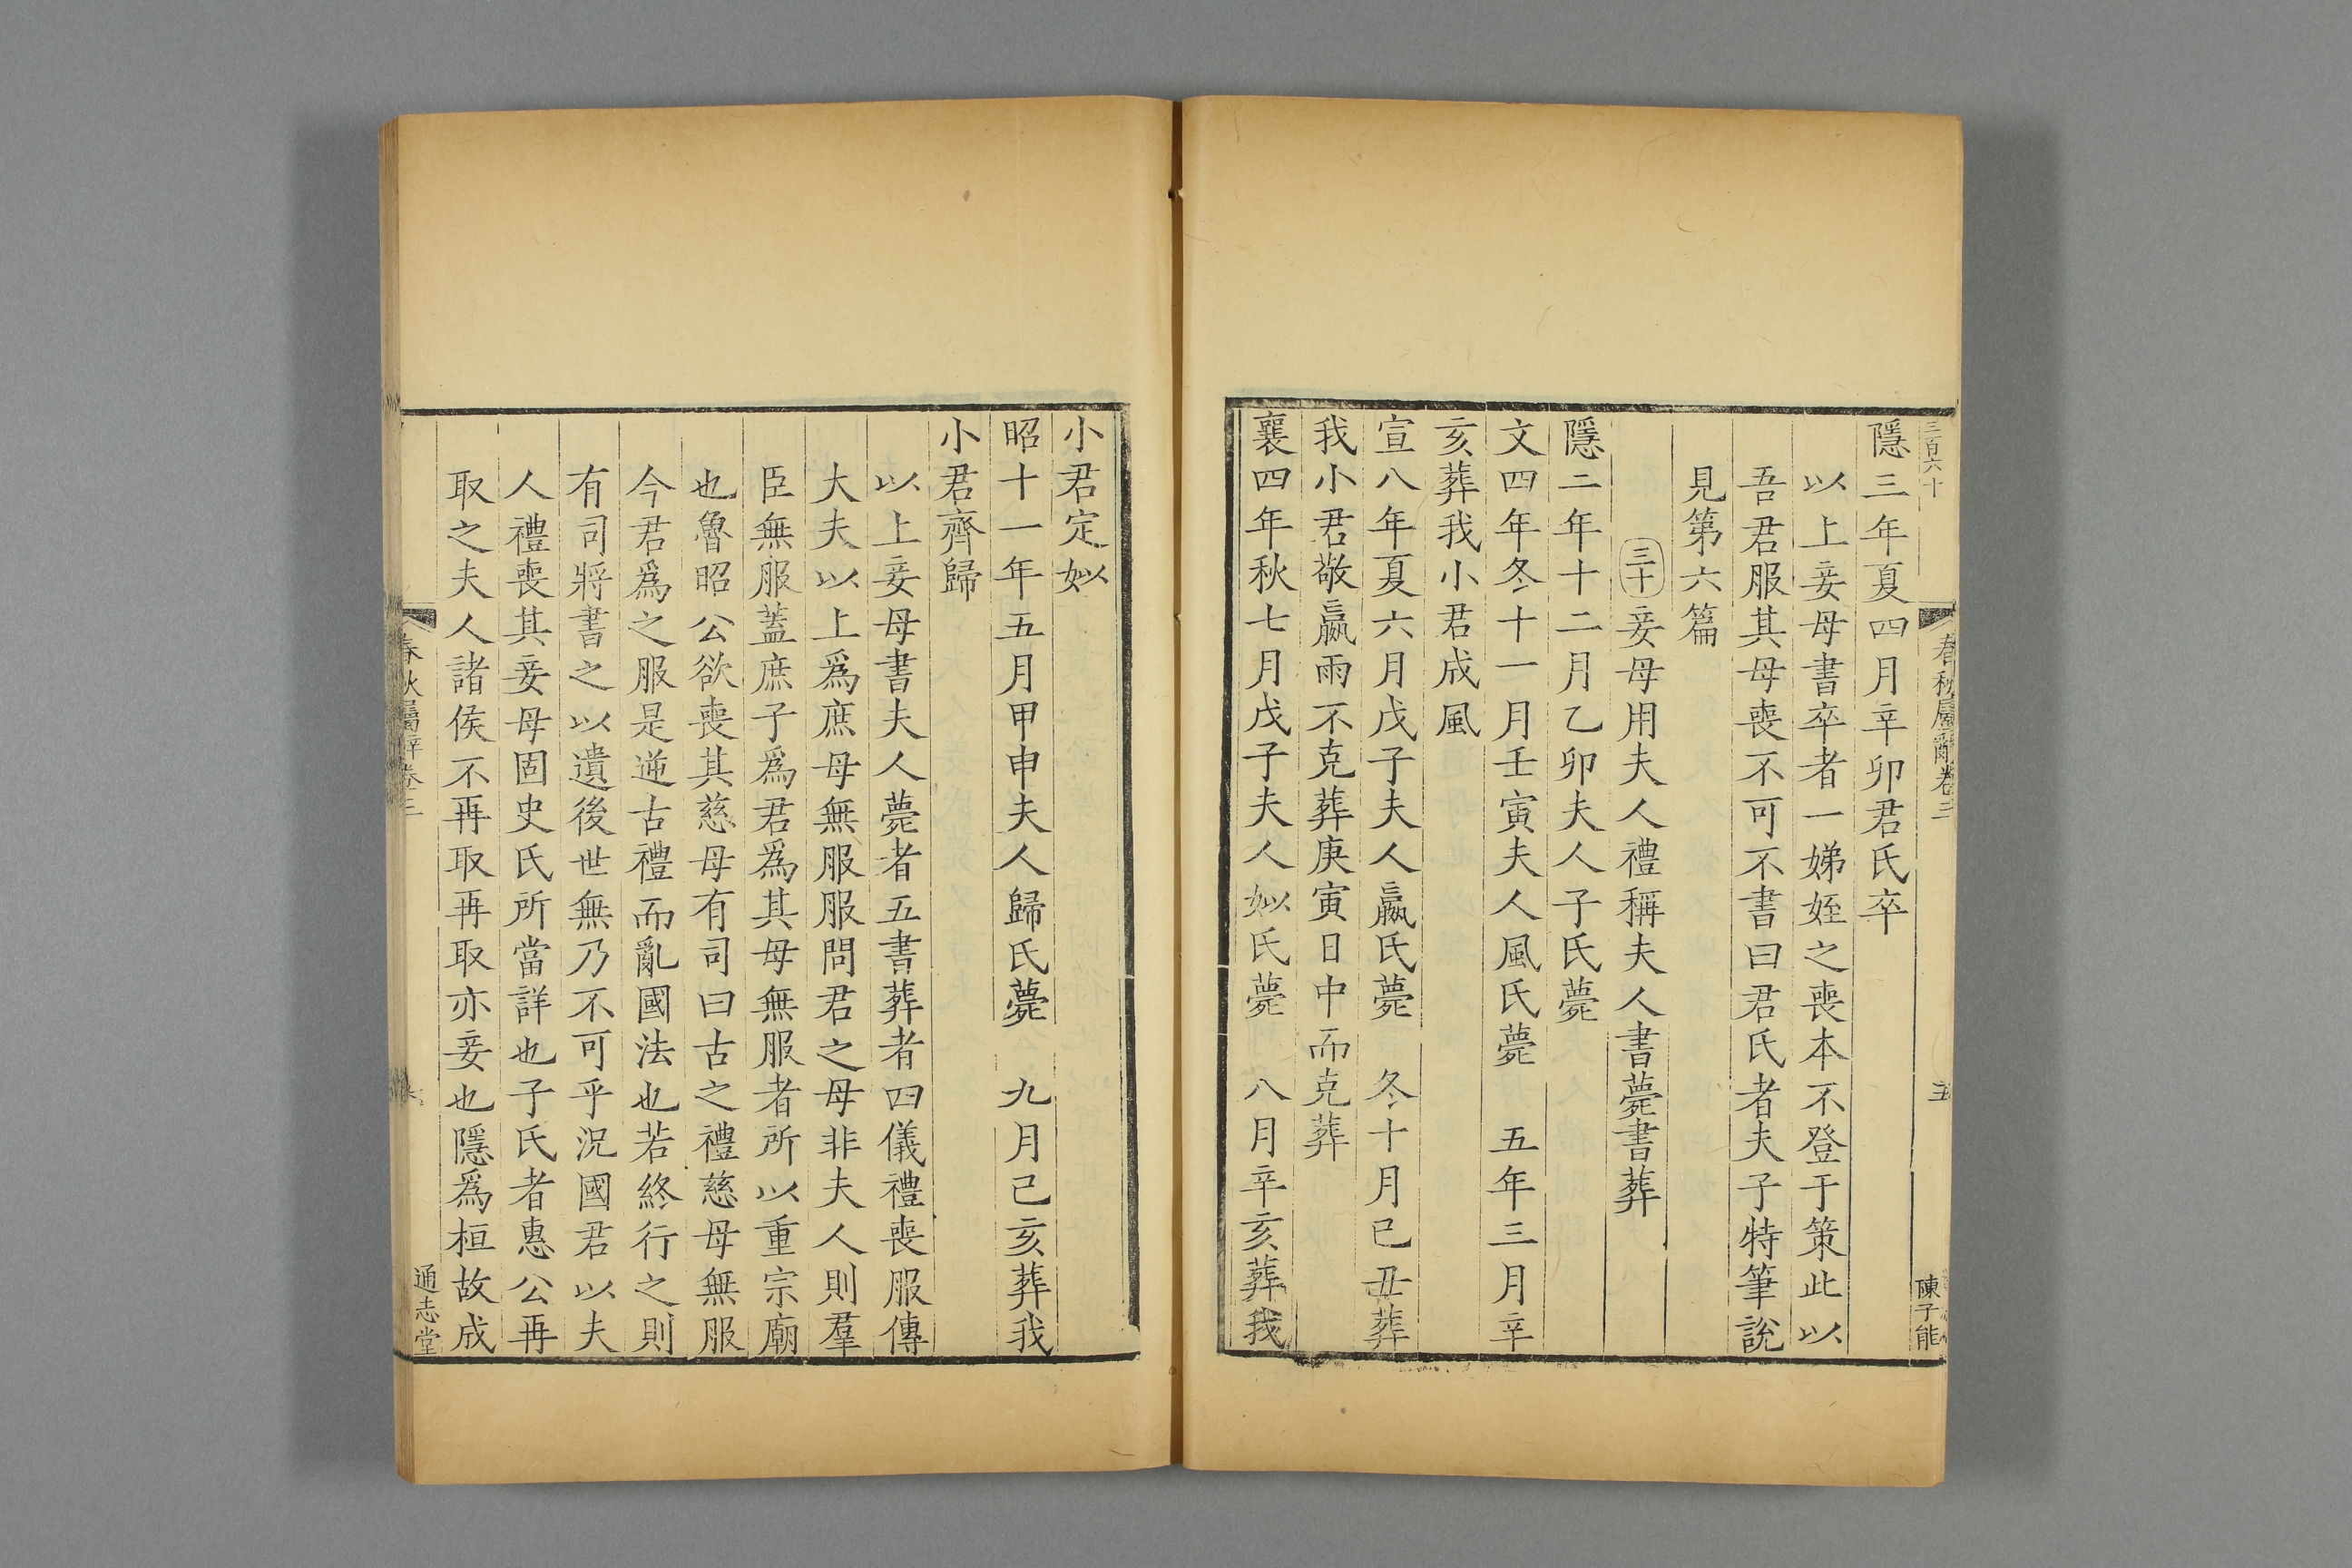 三百六十
春秋屬辭卷三
五
陳子能
隱三年夏四月辛卯君氏卒
以上妾母書卒者一娣姪之喪本不登于策此以
吾君服其母喪不可不書曰君氏者夫子特筆說
見第六篇
三十妾母用夫人禮稱夫人書薨書葬
隱二年十二月乙卯夫人子氏薨
文四年冬十一月壬寅夫人風氏薨　五年三月辛
亥葬我小君成風
宣八年夏六月戊子夫人嬴氏薨　冬十月己丑葬
我小君敬嬴雨不克葬庚寅日中而克葬
襄四年秋七月戊子夫人姒氏薨　八月辛亥葬我
小君定姒
昭十一年五月甲申夫人歸氏薨　九月己亥葬我
小君齊歸
以上妾母書夫人薨者五書葬者四儀禮喪服傳
大夫以上爲庶母無服服問君之母非夫人則羣
臣無服蓋庶子爲君爲其母無服者所以重宗廟
也魯昭公欲喪其慈母有司曰古之禮慈母無服
今君爲之服是逆古禮而亂國法也若終行之則
有司將書之以遺後世無乃不可乎況國君以夫
人禮喪其妾母固史氏所當詳也子氏者惠公再
取之夫人諸侯不再取再取亦妾也隱爲桓故成
春秋屬辭卷三
通志堂